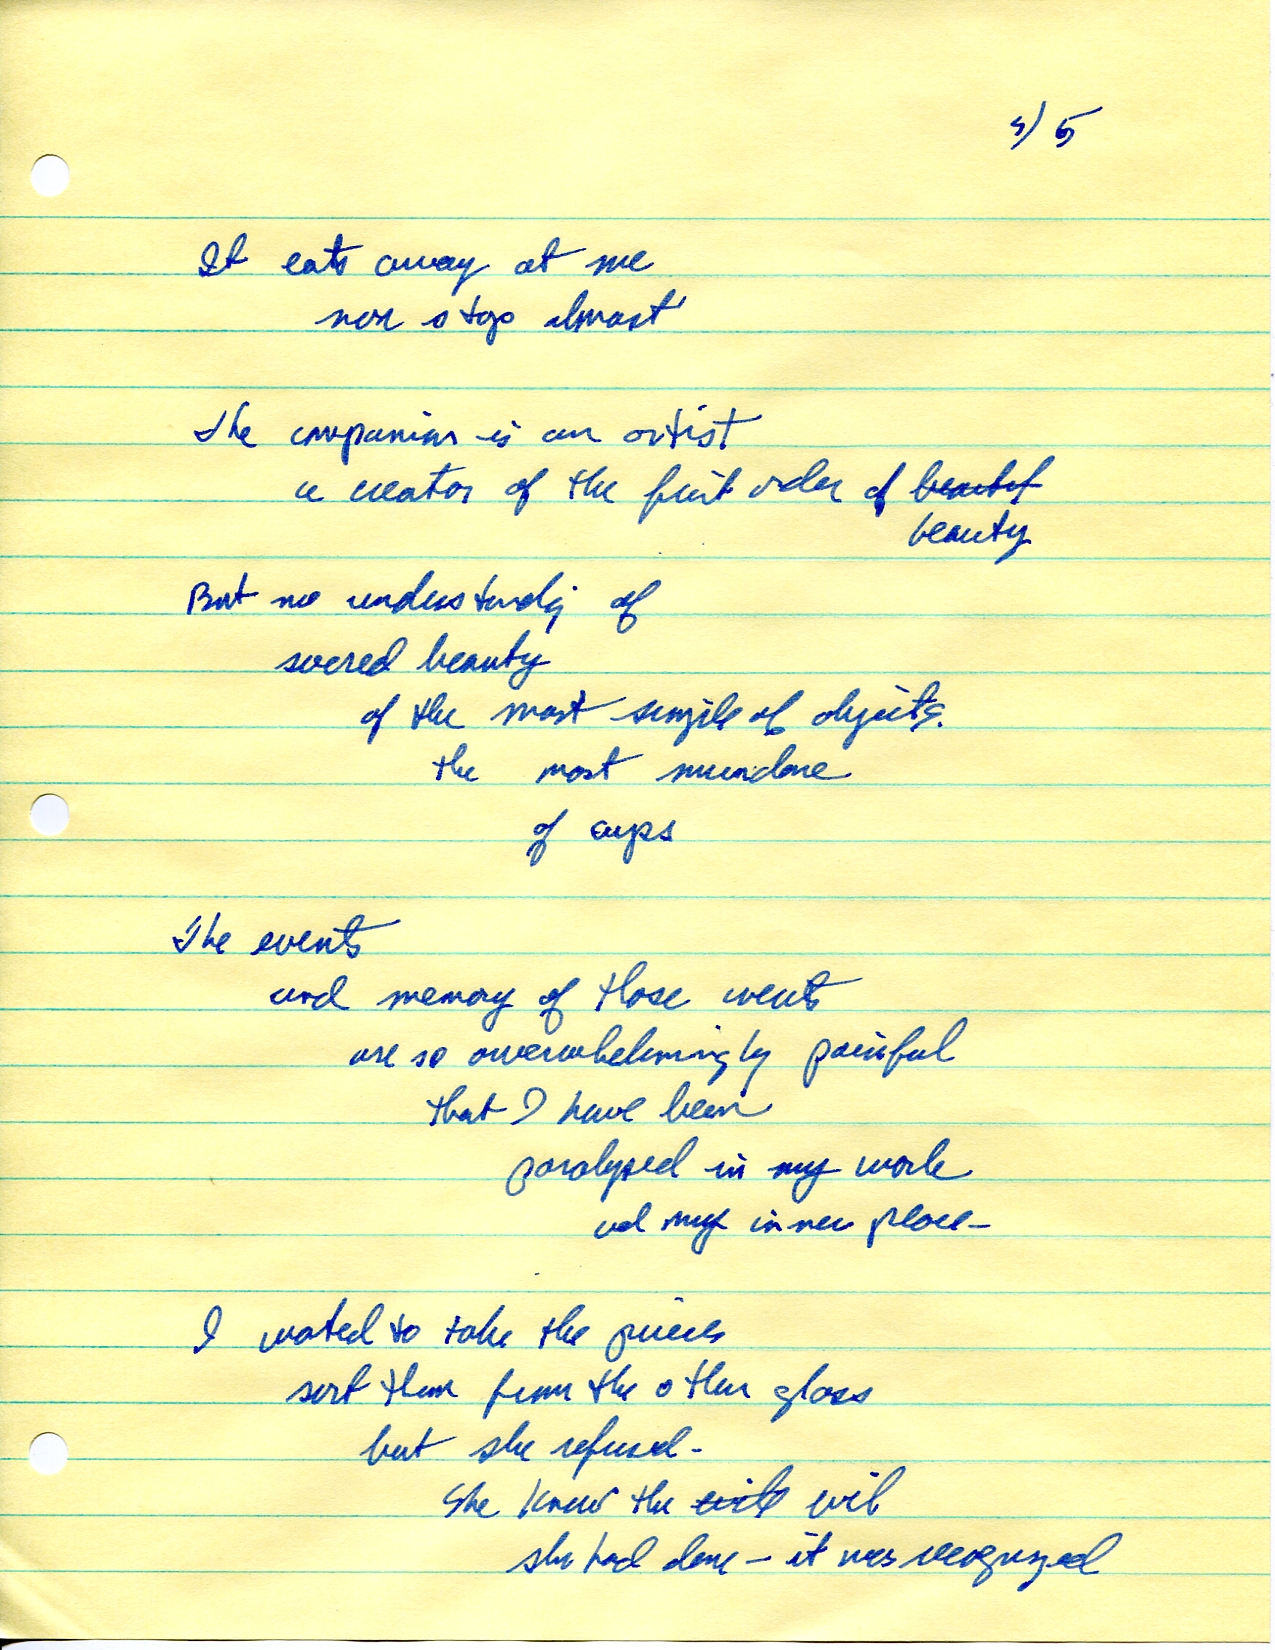 5
It eats away at me
non stop almost
The companion is an artist
a creator of the first order of beautif
beauty
But no understanding of
sacred beauty
of the most simple of objects.
the most mundane
of cups
The events
and memory of those events
are so overwhelmingly painful
that I have been
paralyzed in my work
and my inner peace-
I wanted to take the pieces
sort them from the other glass
but she refused-
She knew the evil
she had done - it was recognized